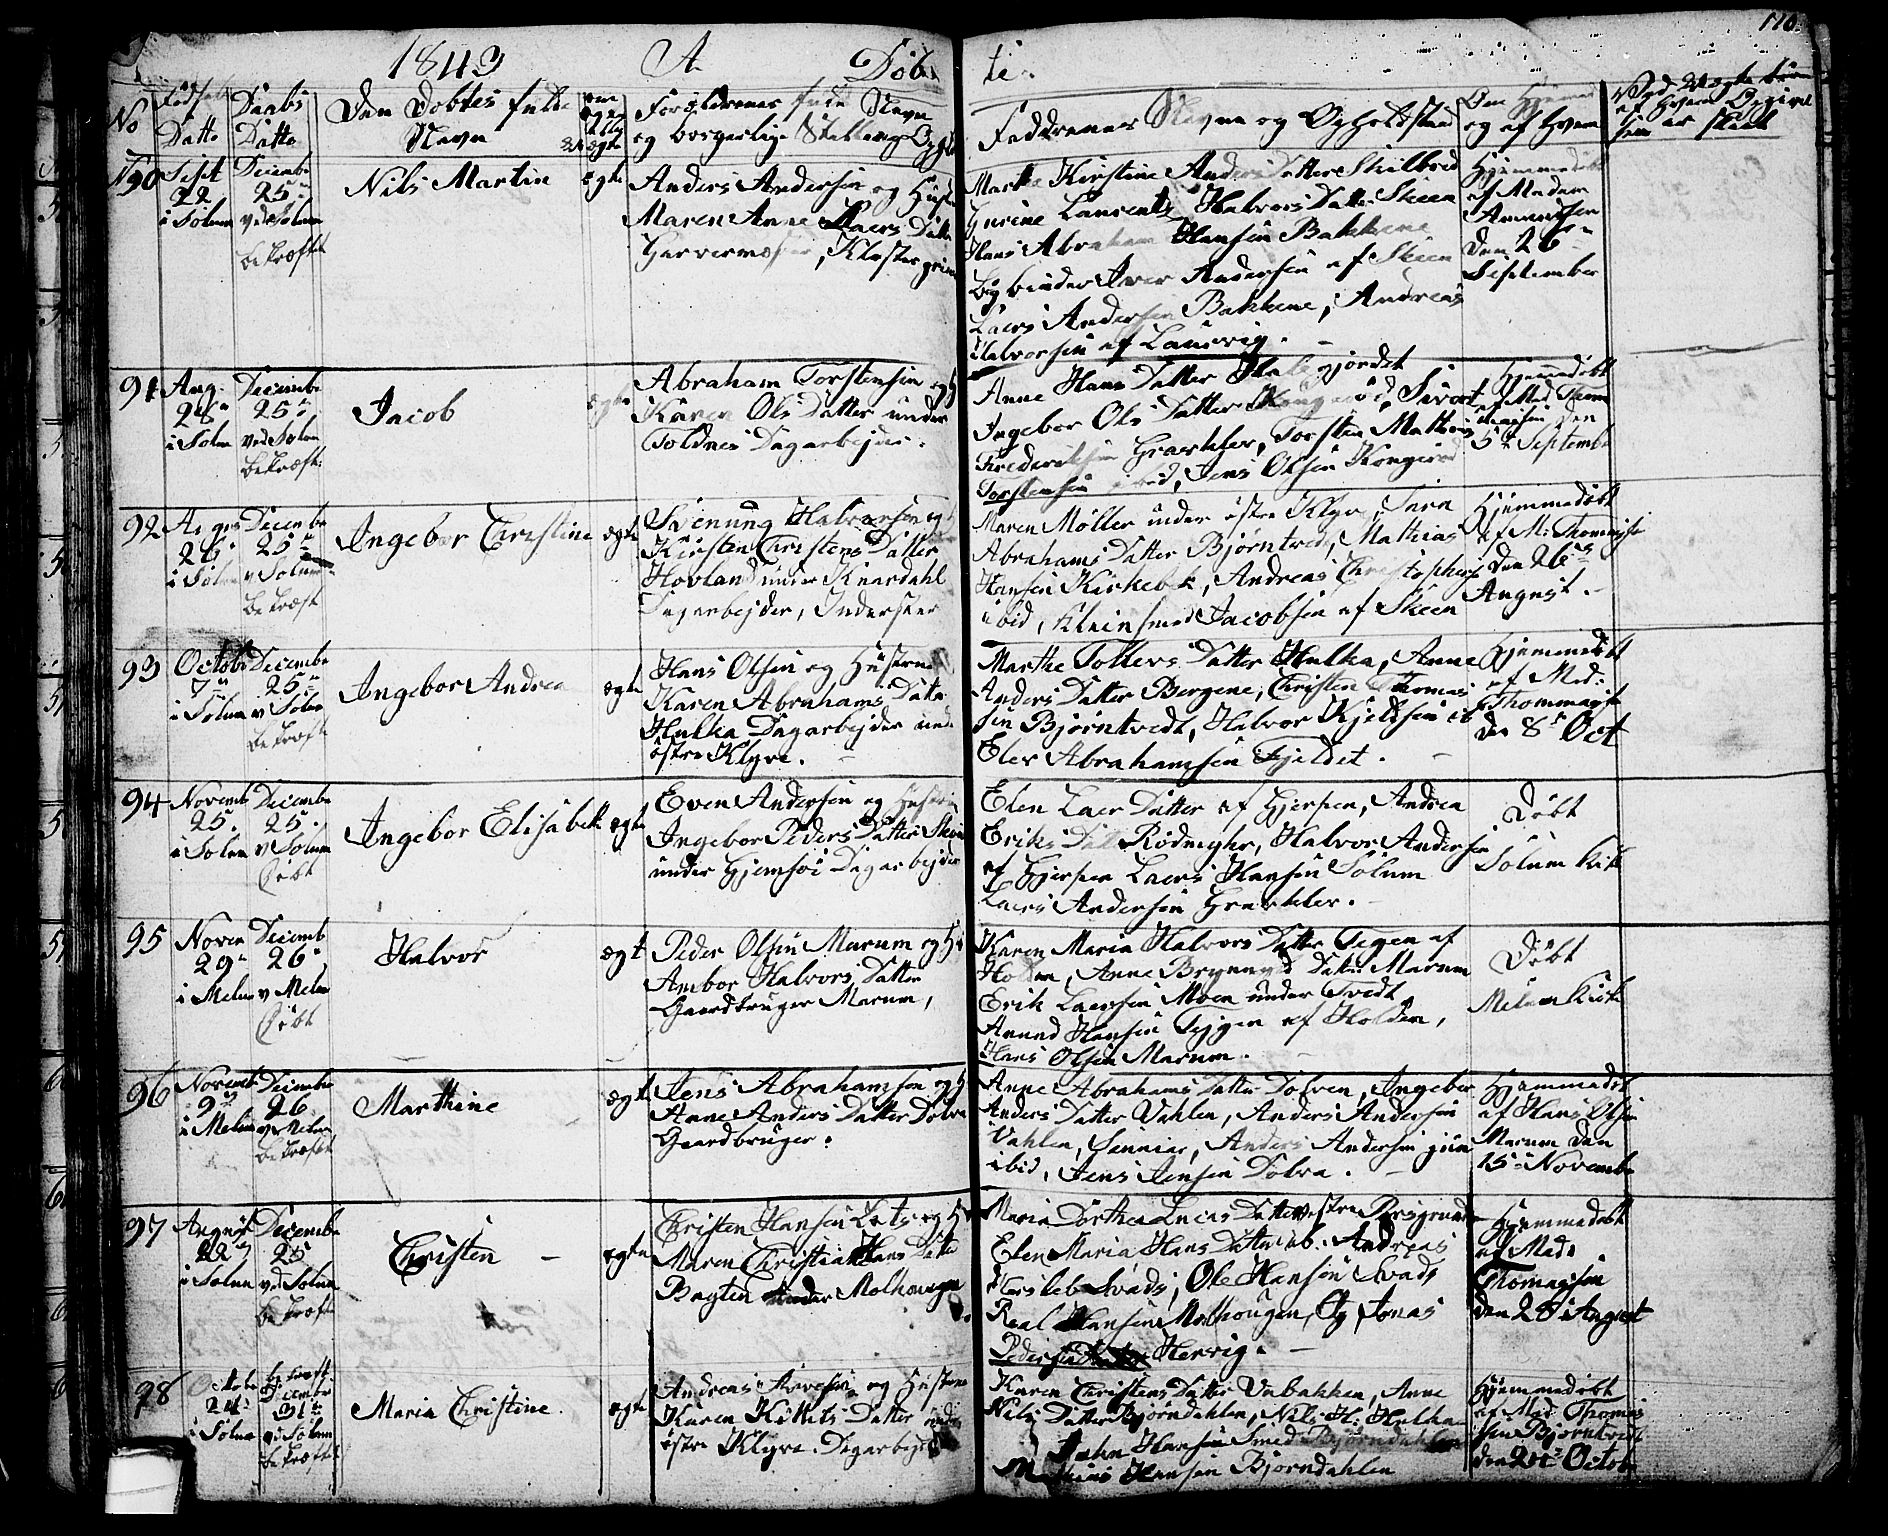 1843 A Døb
te.
116
No
Fødsels
Datto
Daabs
Datto
Den Døbtes fulde
Navn
om
ægte
eller
uægte
Forældrenes fulde Navn
og borgerlige Stilling
Faddrenes Navne og Opholdsted
Om Hjemme
og af hvem
90
Sept
22
i Solum
Decembr
25
ved Solum
bekræftet
Nils Martin
ægte
Anders Andersen og Hustr
Maren Anne Laers Datter
Garvermester, Klostergrind
Marthe Kirstine Anders Datter Skilbred
Gurine Laurents Halvors Datter Skeen
Hans Abraham Hansen Bakkene
Bogbinder Iver Andersen af Skeen
Laers Andersen Bakkene, Andreas
Halvorsen af Laurvig.
Hjemmedøbt
af Madam
Amundsen
den 26
September
91
Aug.
28
i Solum
Decembr
25
ved Solum
bekræft.
Jacob
ægte
Abraham Torstensen og H
Karen Ols Datter under
Toldnes Dagarbejder.
Anne Hans Datter Hals gjordet
Ingebor Ols Datter Kongerød, Sivort
Frederiksen Graakler, Torsten Mathias
Torstensen ibid, Jens Olsen Kongerød
Hjemmedøbt
af Mad Thom
masen den
5 Septembr
92
Augus
26
i Solum
Decembr
25
v Solum
bekræft
Ingebor Christine
ægte
Svenung Halvorsen og H
Kirsten Christens Datter
Hovland under Knardahl
Dagarbejder, Inderster
Maren Møller under østre Klyve, Sara
Abrahams Datter Bjørntvedt, Mathias
Hansen Kirkebek, Andreas Christophers
ibid, Kleinsmed Jacobsen af Skeen
Hjemmedøbt
af M: Thomasse
den 26
August.
93
Octobr
7
i Solum
Decembr
25
v Solum
bekræft
Ingebor Andrea
ægte
Hans Olsen og Hustrue
Karen Abrahams Datter
Hulka Dagarbejder unde
østre Klyve.
Marthe Tollevs Datter Hulka, Anne
Anders Datter Bergene, Christen Thomas
sen Bjørntvedt, Halvor Kjeldsen ib
Elev Abrahamsen Fjeldet.
Hjemmedøbt
af Mad:
Thommasse
den 8 Oct
94
Novemb
25.
i Solum
Decembr
25.
v Solum
døbt
Ingebor Elisabeth
ægte
Even Andersen og Hustru
Ingebor Peders Datter
under Gjemsøi Dagarbejder
Elen Laers Datter af Gjerpen, Andrea
Eriks Datter Rødmyhr, Halvor Andersen
af Gjerpen Laers Hansen Solum
Laers Andersen Graakler.
Døbt
Solum Kirk
95
Novem
29
i Melum
Decemb
26
v Melum
døbt
Halvor
ægt
Peder Olsen Marum og H
Ambor Halvors Datter
Gaardbruger Marum,
Karen Maria Halvors Datter Tegen af
Holden, Anne Brynnild Datter Marum
Erik Laersen Moen under Tvedt
Amund Hansen Tygen af Holden,
Hans Olsen Marum.
Døbt
Melum Kirk
96
Novemb
9
i Melum
Decembr
26
v Melum
bekræftet
Marthine
ægt
Jens Abrahamsen og H
Anne Anders Datter Dolva
Gaardbruger.
Anne Abrahams Datter Dolven, Ingebor
Anders Datter Vahlen, Anders Andersen
Vahlen, Sennier, Anders Andersen jun
ibid, Jens Jensen Dolva.
Hjemmedøbt
af Hans Olsen
Marum den
15 Novembr
97
August
22
i Solum
Decembr
25
ved Solum
bekræftet
Christen
ægte
Christen Hansen og H
Maren Christina Hans Datter
Bagten under Molhougen
Maria Dorthea Lucas Datter vestre Porsgrund
Elen Maria Hans Datter ib. Andreas
Hersleb Svads, Ole Hansen Svads
Real Hansen Molhougen, Og Jonas
Pedersen Hervig.
Hjemmedøbt
af Mad:
Thomassen
den 28 August
98
Octobr
24
i Solum
bekræft
Decembr
31
ved Solum
bekræftet
Maria Christine.
ægte
Andreas Arvesen og Hustrue
Karen Kittels Datter under
østre Klyve. Dagarbejder
Karen Christens Datter Vabakken, Anne
Nils Datter Bjørndahlen, Nils H: Hulka
John Hansen Smed Bjørndahlen
Mathias Hansen Bjørndahlen
Hjemmedøbt
af Mad. Thomas
sen Bjørntvedt
den 24 Octobr